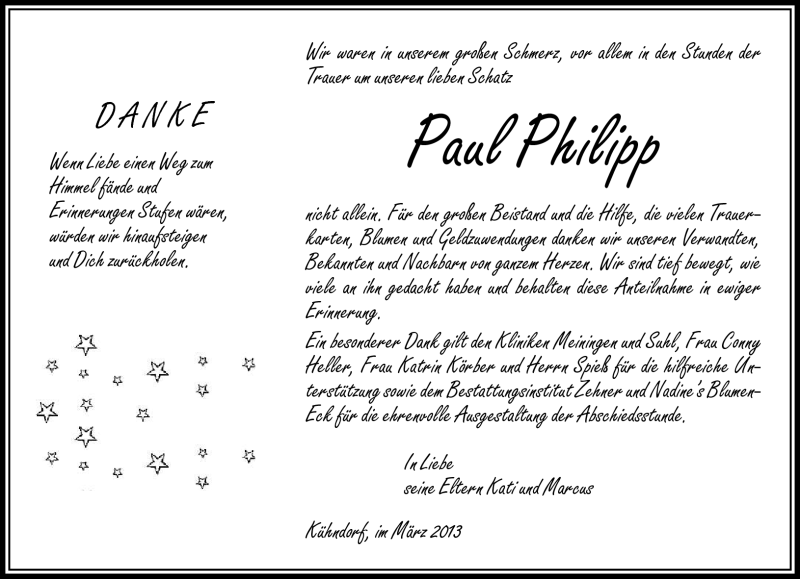 DANKE
Wenn Liebe einen Weg zum
Himmel fände und
Erinnerungen Stufen wären,
würden wir hinaufsteigen
und Dich zurückholen.
Wir waren in unserem großen Schmerz, vor allem in den Stunden der
Trauer um unseren lieben Schatz
Paul Philipp
nicht allein. Für den großen Beistand und die Hilfe, die vielen Trauer-
karten, Blumen und Geldzuwendungen danken wir unseren Verwandten,
Bekannten und Nachbarn von ganzem Herzen. Wir sind tief bewegt, wie
viele an ihn gedacht haben und behalten diese Anteilnahme in ewiger
Erinnerung.
Ein besonderer Dank gilt den Kliniken Meiningen und Suhl, Frau Conny
Heller, Frau Katrin Körber und Herrn Spieß für die hilfreiche Un-
terstützung sowie dem Bestattungsinstitut Zehner und Nadine's Blumen-
Eck für die ehrenvolle Ausgestaltung der Abschiedsstunde.
In Liebe
seine Eltern Kati und Marcus
Kühndorf, im März 2013